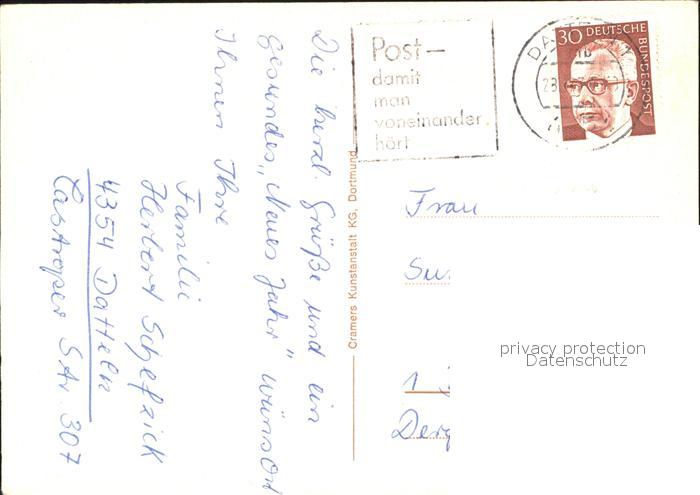 Die herzl. Grüße und ein
gesundes „Neues Jahr" wünscht
Ihnen Ihre
Familie
Herbert Schefzick
4354 Datteln
Castroper Str. 307
Cramers Kunstanstalt KG, Dortmund
Post—
damit
man
voneinander
hört
30 DEUTSCHE
BUNDESPOST
Frau
privacy protection
Datenschutz